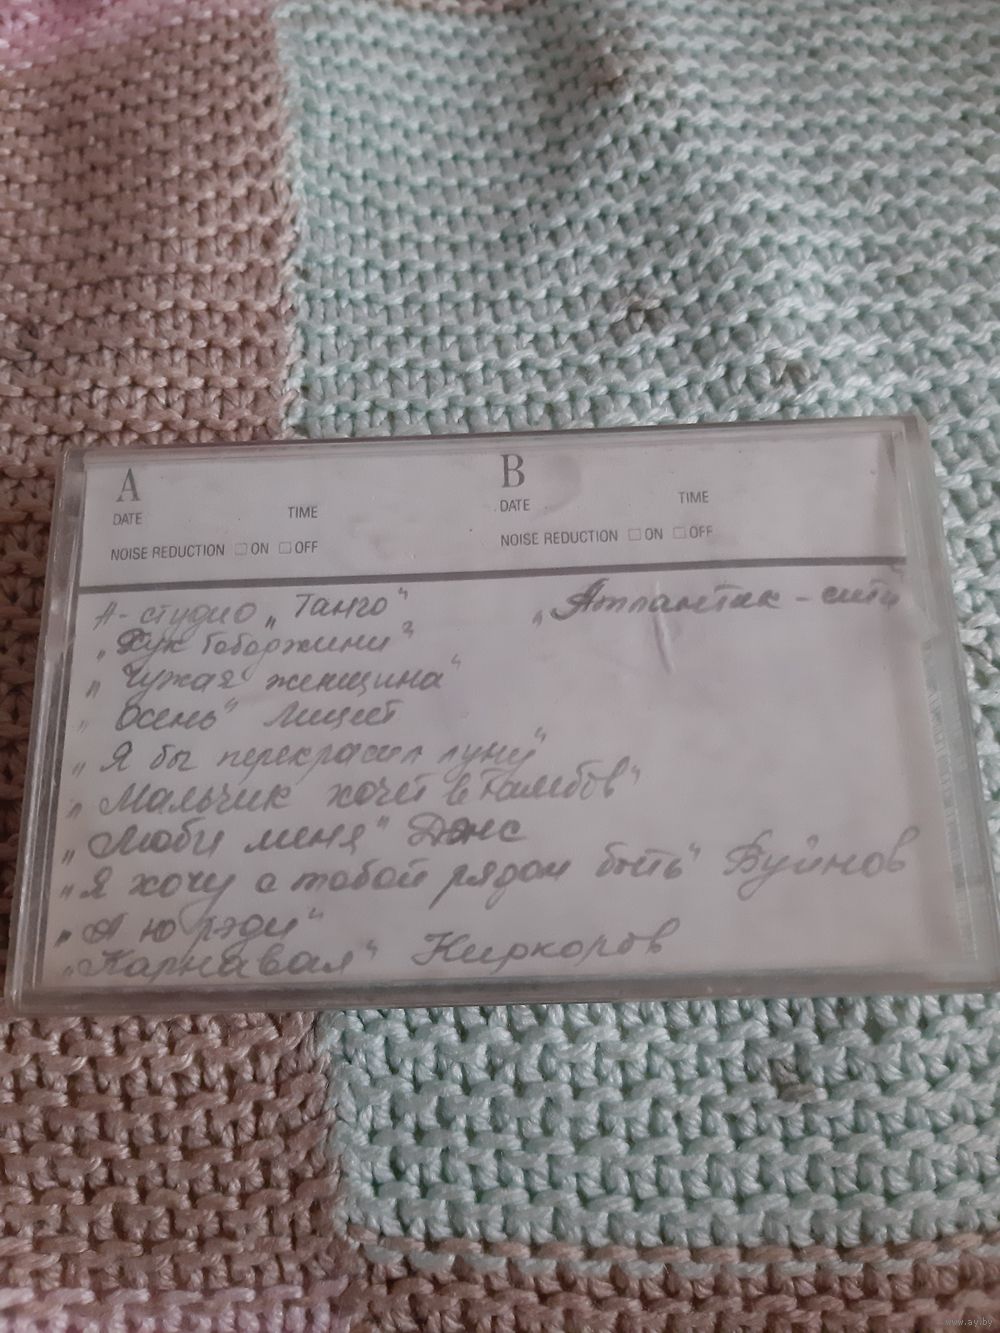 A B
DATE TIME DATE TIME
NOISE REDUCTION □ ON □ OFF NOISE REDUCTION □ ON □ OFF
А-студио „Танго" „Атлантик-сити
„Хук
„Чужая женщина"
„Осень" Лицей
„Я бы перекрасил луну"
„Мальчик хочет в Тамбов"
„Люби меня"
„Я хочу с тобой рядом быть" Буйнов
„А ю рэди"
„Карнавал" Киркоров
www.ay.by